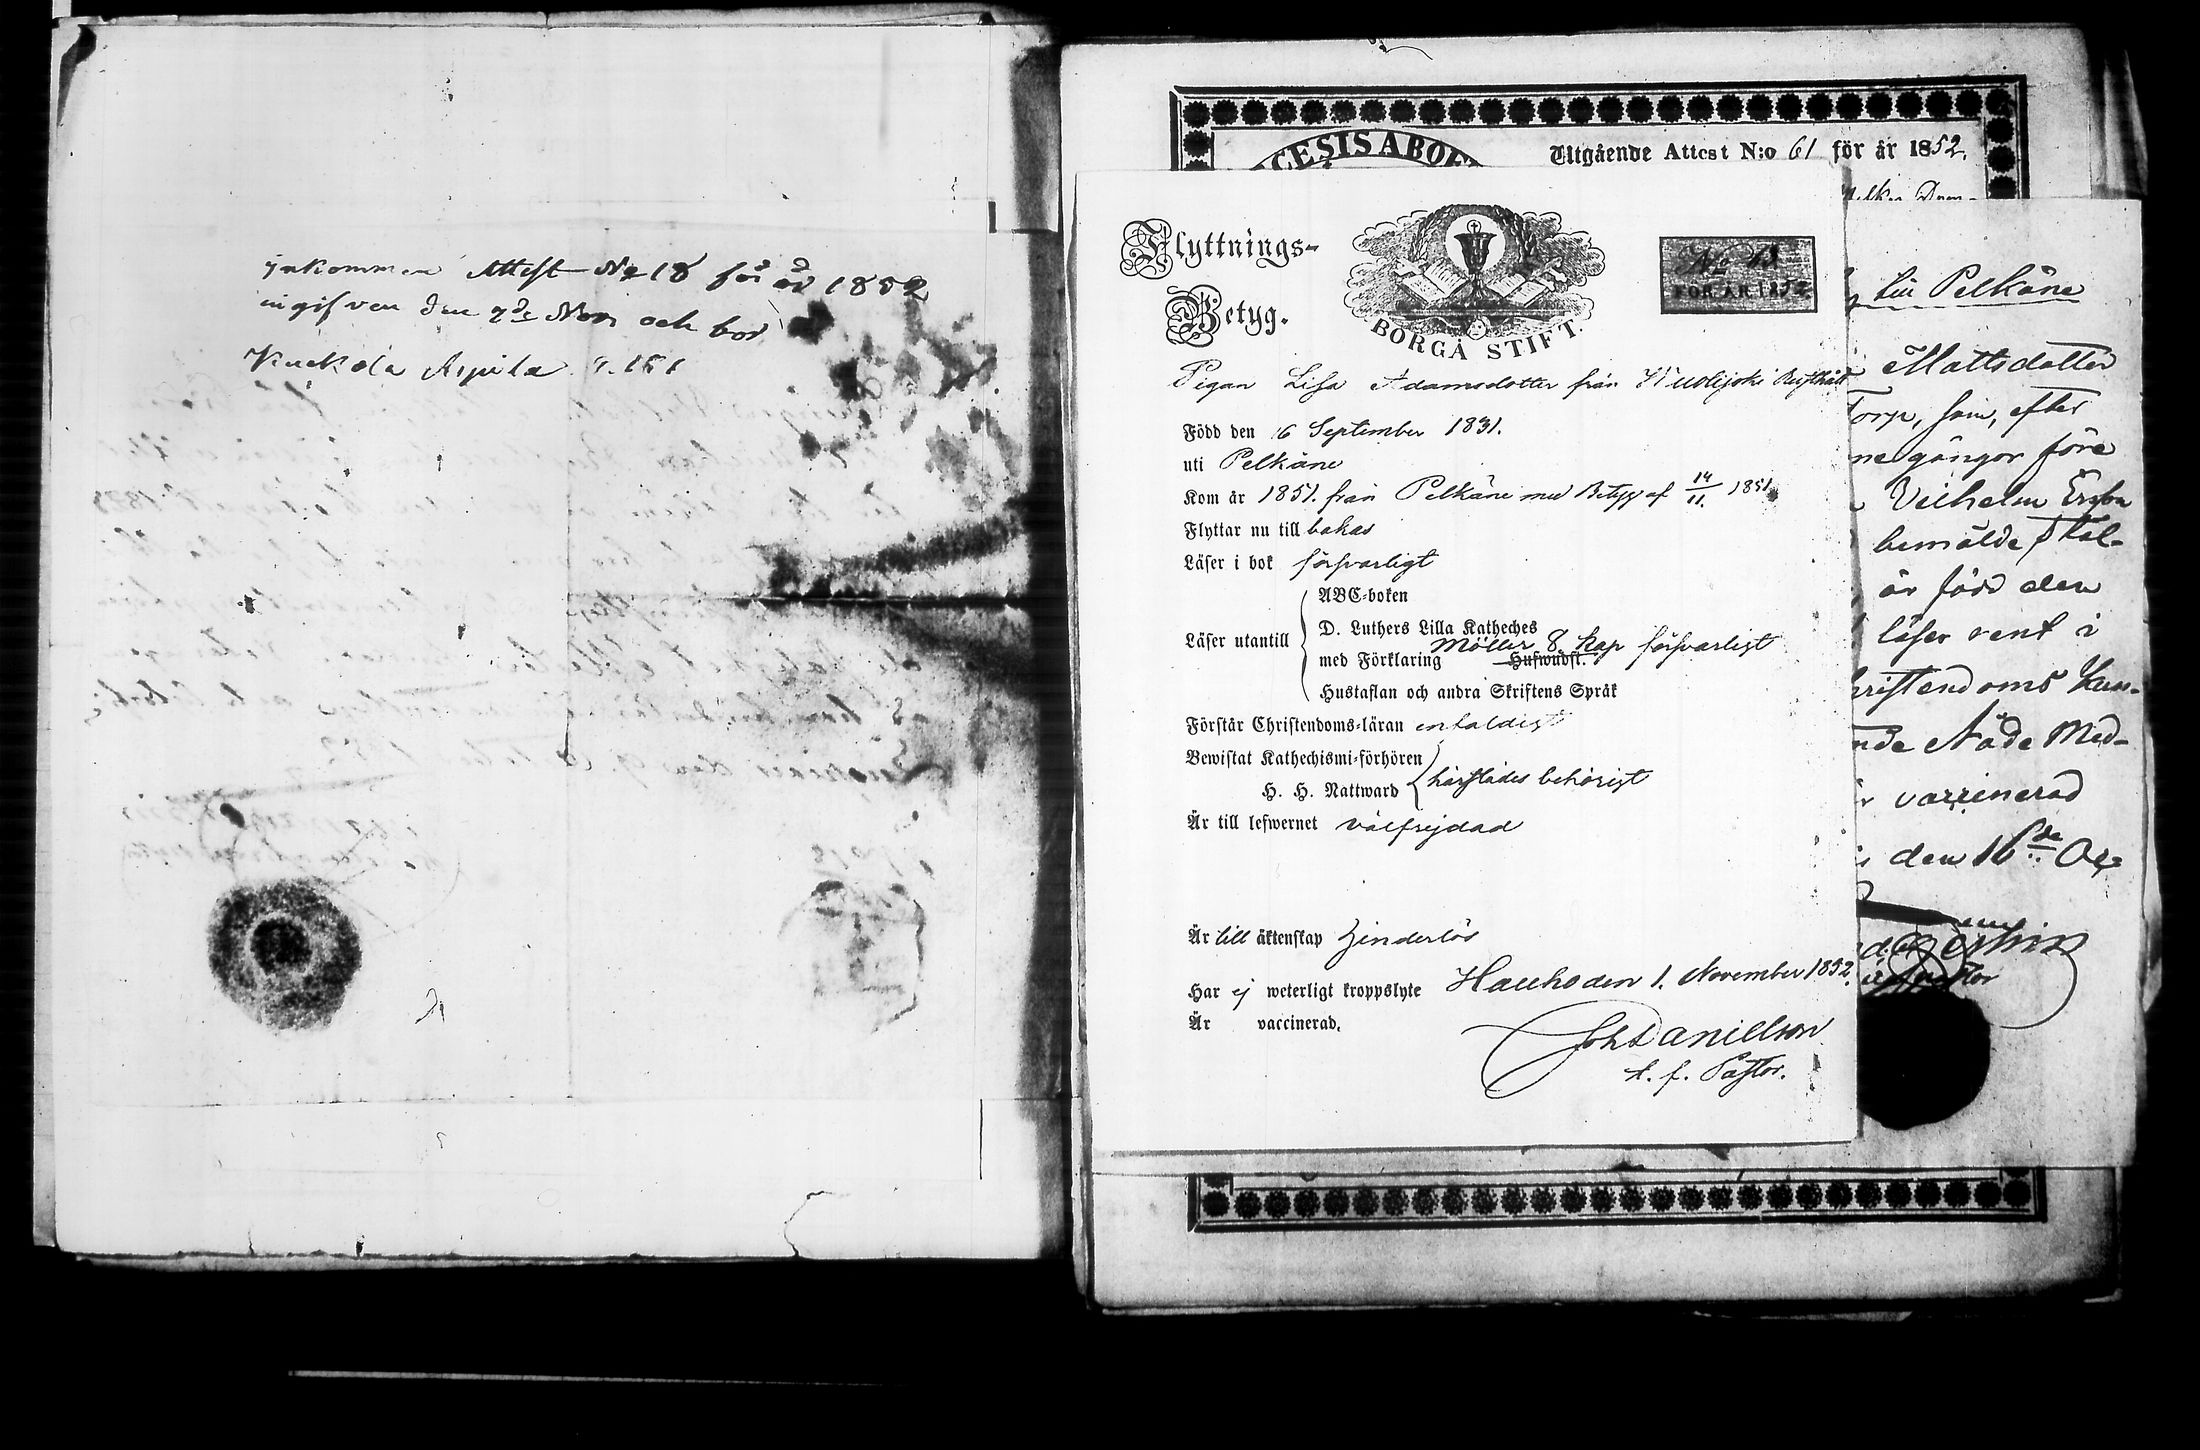 inkommen Attest No 18 för år 1852
ingifven den 7de Nov och bor
Kuckola Arpila
CESIS ABOE
Utgående Attest N:o 61 för år 1852.
Flyttnings-
Betyg.
BORGÅ STIFT
No
FÖR ÅR 1852
Pigan Lisa Adamsdotter från
Född den 16 September 1831.
uti Pelkäne
Kom år 1851. från Pelkäne med Betyg af 14/11. 1851
Flyttar nu till bakas
Läser i bok försvarligt
ABC-boken
D. Luthers Lilla Katheches
Läser utantill
Möller 8 Kap försvarligt
med Förklaring Hufwudst.
Hustaflan och andra Skriftens Språk
Förstår Christendoms-läran enfaldigt
Bewistat Kathechismi-förhören
H. H. Nattward härstädes behörigt
Är till lefwernet välfrejdad
Är till äktenskap hinderlös
Har ej weterligt kroppslyte
Hauho den 1. November 1852.
Är vaccinerad.
Joh Danielson
t. f. Pastor.
till Pelkäne
Mattsdotter
Torp, som, efter
gångor före
Vilhelm Ersson
bemälde
är född den
läser rent i
Christendoms Kun-
Nåde Med-
vaccinerad
den 16de